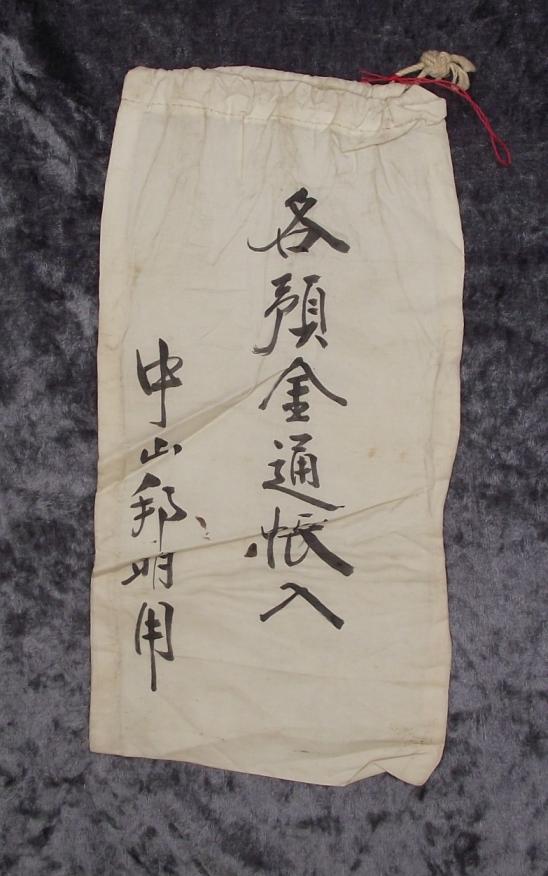 各預金通帳入
中山邦明用